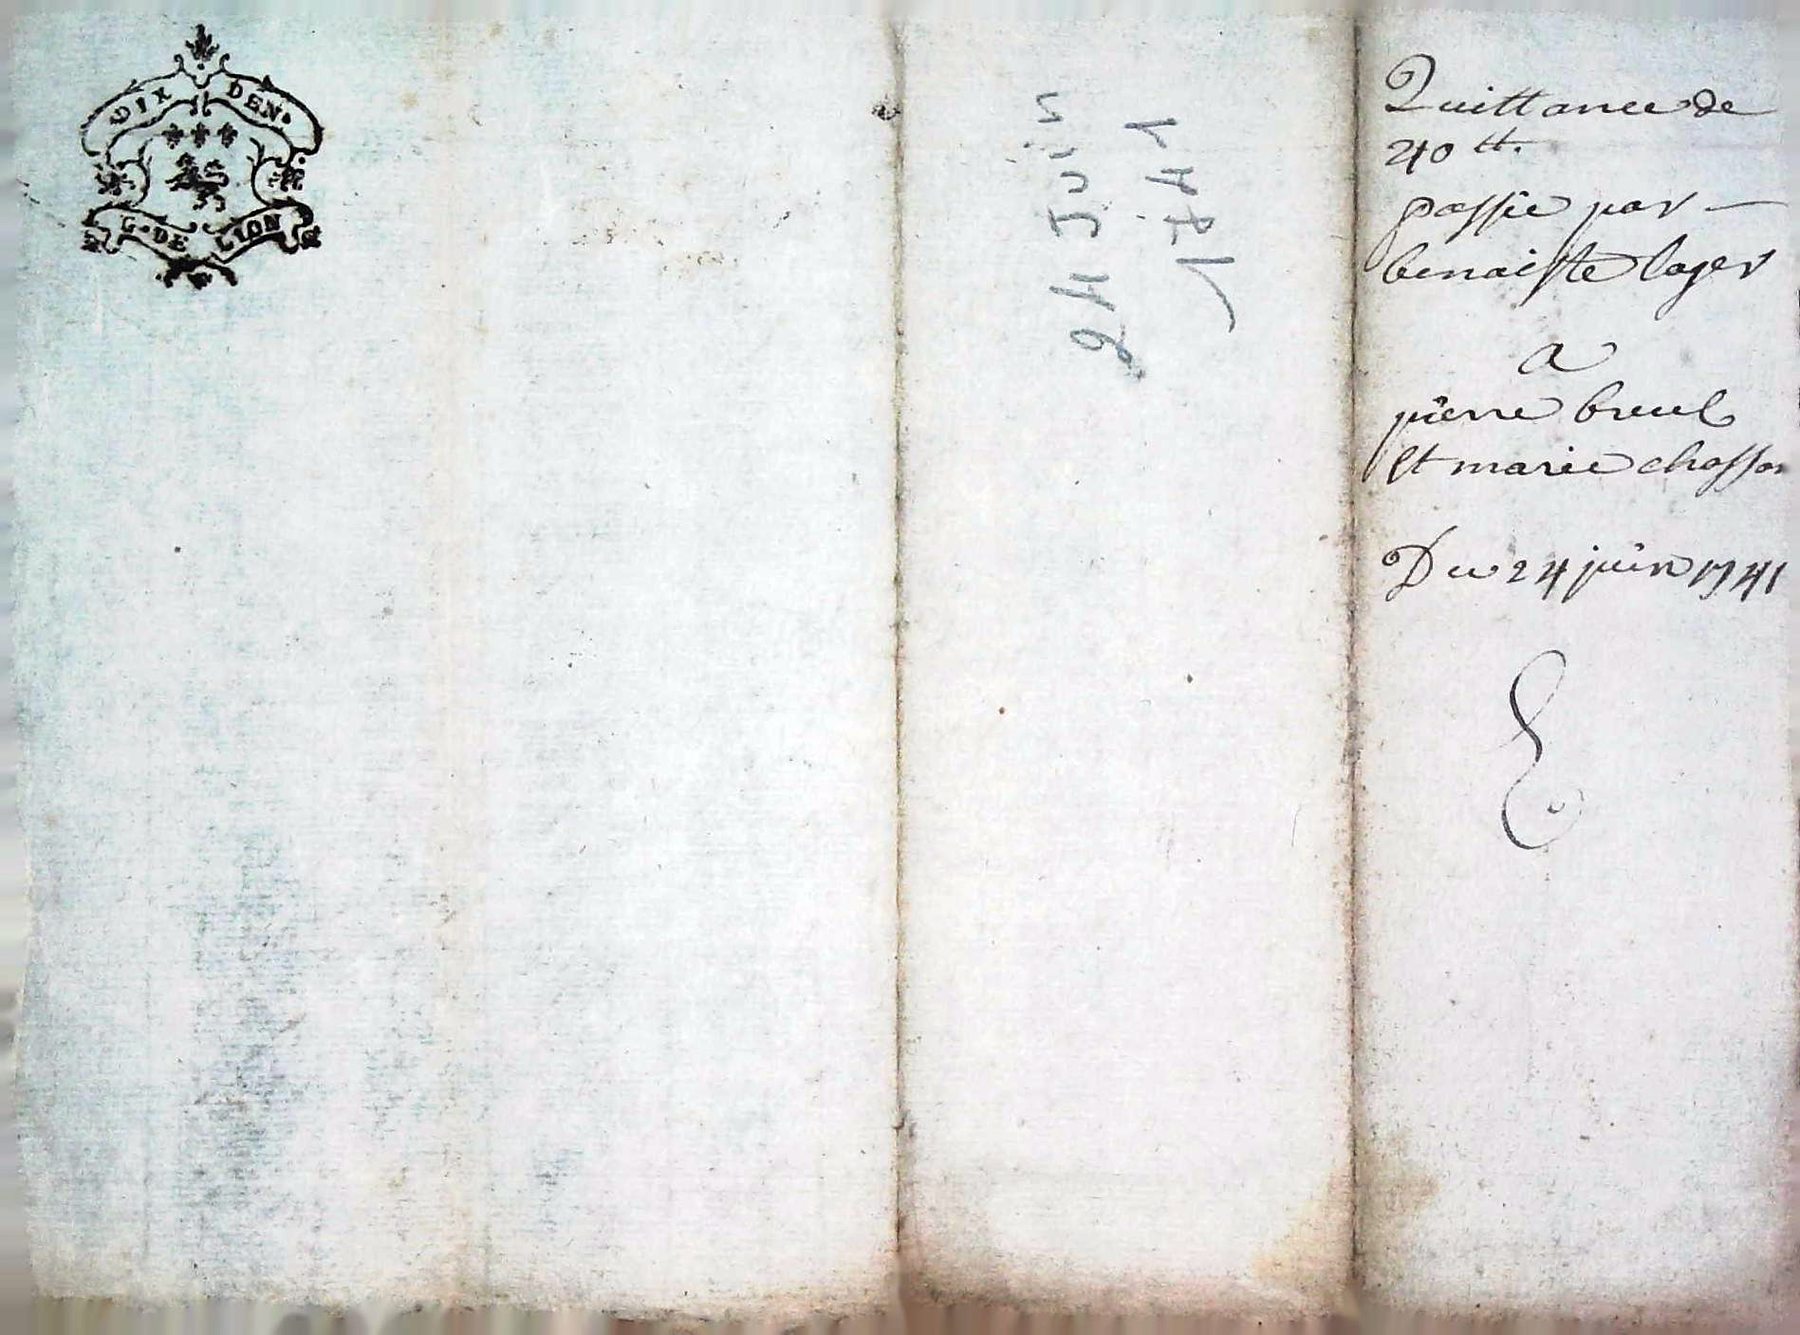 DIX DEN.
G. DE LION
24 Juin
1741
Quittance de
240 tt.
passée par —
benoiste loger
a
pierre breul
Et marie chosson
Du 24 juin 1741